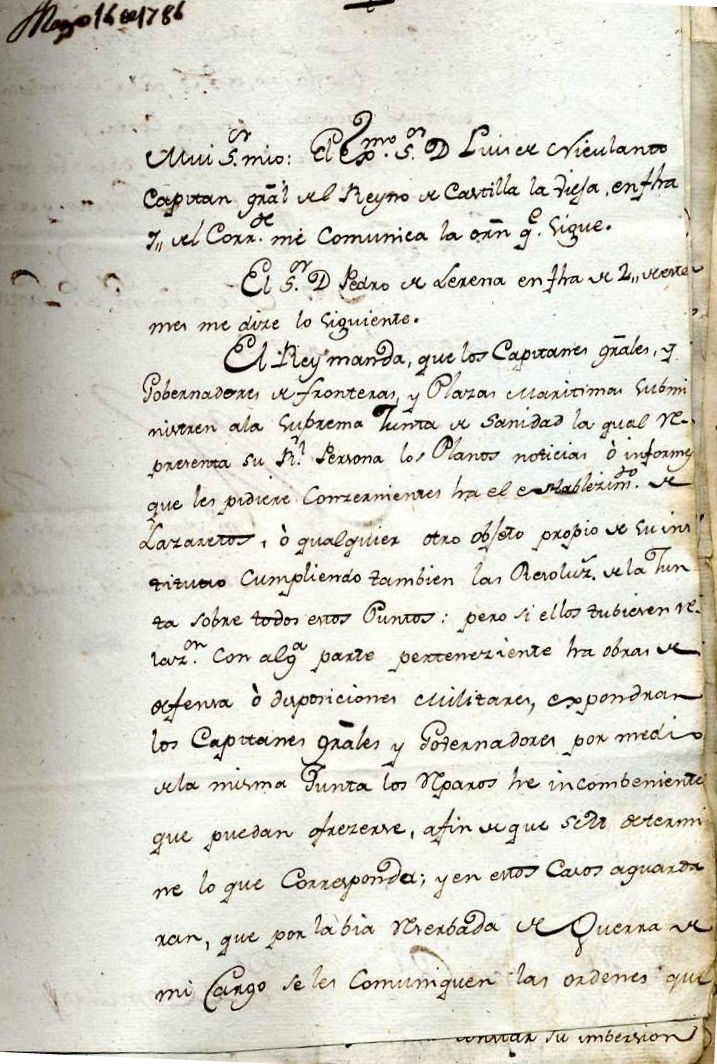 Mayo 16 de 1786
Mui S.or mio: El Exmo. S.or D Luis de Niculanto
Capitan grãl del Reyno de Castilla la Vieja, en fha
7,, del Corr.te me Comunica la orñ q.e sigue.
El S.or D Pedro de Lerena en fha de 2,, de este
mes me dize lo siguiente.
El Rey manda, que los Capitanes grãles, y
Gobernadores de fronteras, y Plazas Maritimas submi
nistren ala Suprema Junta de Sanidad la qual re-
presenta su R.l Persona los Planos noticias ò informes
que les pidiere Conzernientes ha el establezim.to de
Lazaretos, ò qualquier otro objeto propio de su ins
tituto Cumpliendo tambien las Resoluz.s de la Jun
ta sobre todos estos Puntos: pero si ellos tubiesen re-
laz.on Con alg.a parte perteneziente ha obras de
defensa ò disposiciones Militares, expondran
los Capitanes grãles y Gobernadores por medio
de la misma Junta los reparos he incombenientes
que puedan ofrezerse, afin de que se determi
ne lo que Corresponda; y en estos Casos aguarda
ran, que por la bia reserbada de Guerra de
mi Cargo se les Comuniquen las ordenes que
su imbersion